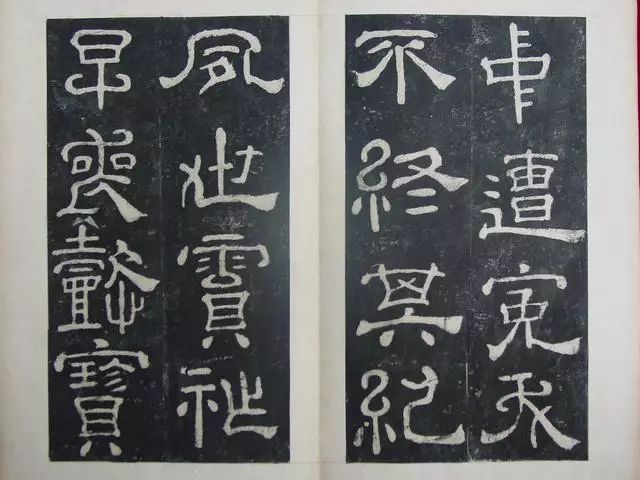 中遭冤夭
不終其紀
夙世霣祚
早喪懿寶